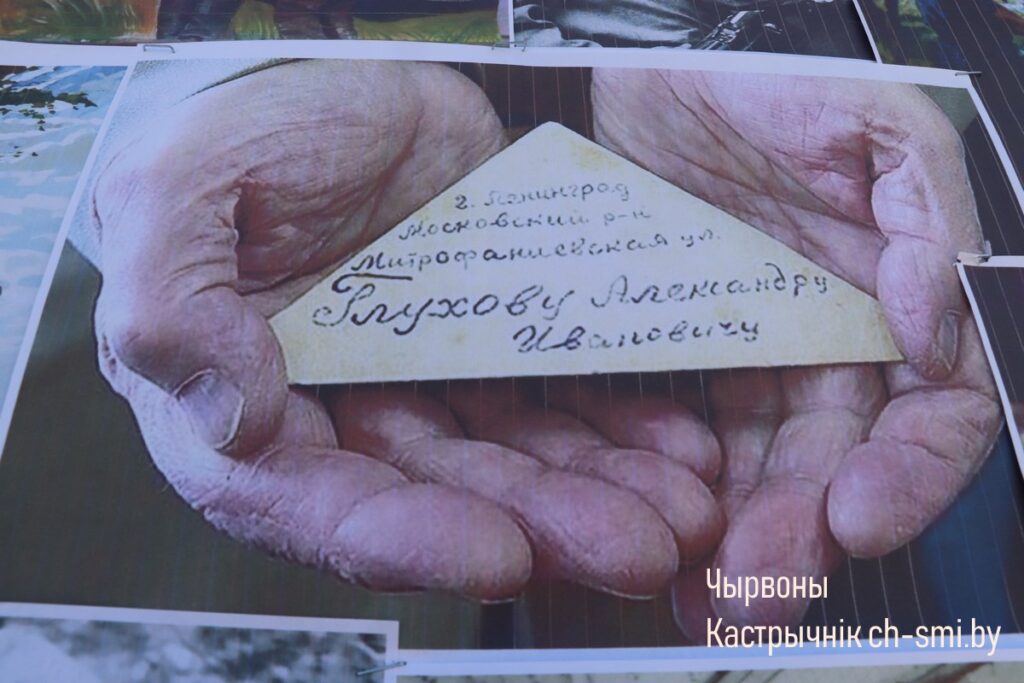 г. Ленинград
Московский р-н
Митрофаниевская ул.
Глухову Александру
Ивановичу
Чырвоны
Кастрычнік ch-smi.by